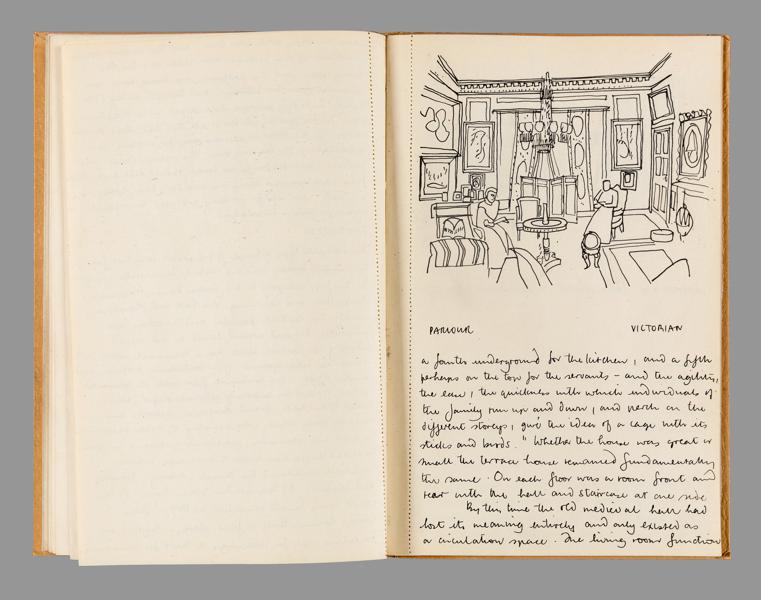 PARLOUR VICTORIAN
a fourth underground for the kitchen, and a fifth
perhaps on the top for the servants - and the agility,
the ease, the quickness with which individuals of
the family run up and down, and perch on the
different storeys, give the idea of a cage with its
sticks and birds." Whether the house was great or
small the terrace house remained fundamentally
the same. On each floor was a room front and
rear with the hall and staircase at one side
By this time the old medieval hall had
lost its meaning entirely and only existed as
a circulation space. The living room function